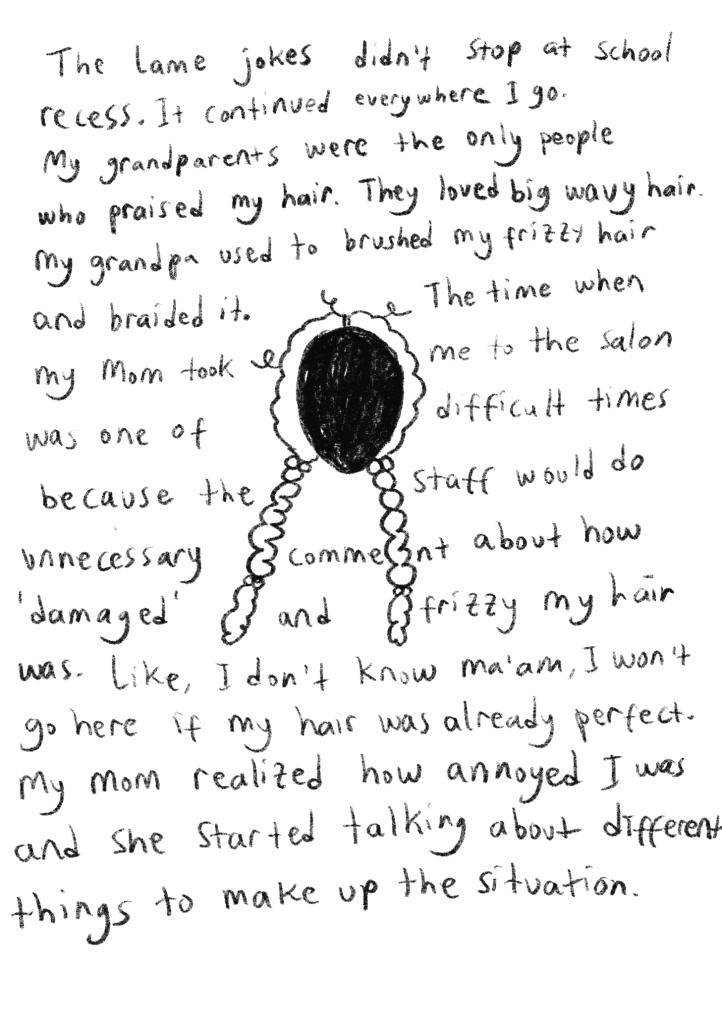 The lame jokes didn't stop at school
recess. It continued everywhere I go.
My grandparents were the only people
who praised my hair. They loved big wavy hair.
My grandpa used to brushed my frizzy hair
and braided it. The time when
my Mom took me to the salon
was one of difficult times
because the staff would do
unnecessary comment about how
'damaged' and frizzy my hair
was. Like, I don't know ma'am, I won't
go here if my hair was already perfect.
My mom realized how annoyed I was
and she started talking about different
things to make up the situation.